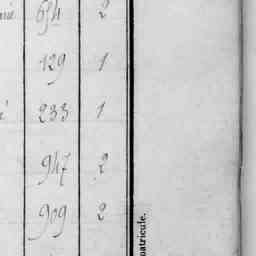 654 2
129 1
233 1
947 2
909 2
matricule.